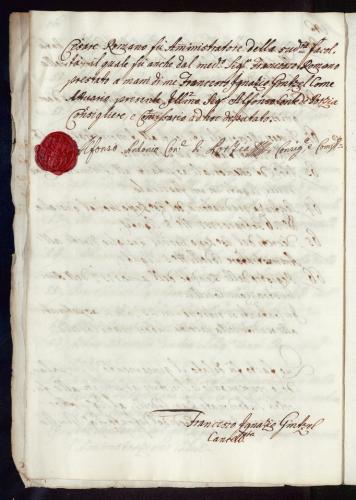 Cesare Romano fù Aministratore della sud.ª facol
tà, il quale fù anche dal med.º Sig.r Francesco Romano
prestato a mani di me Francesco Ignazio Gintzel Come
Attuario, presente Sig.r Alfonso de Porzia
Consigliere, e Comissario ad hoc deputato.
Alfonso Antonio Con. di Porzia Consig.e
Francesco Ignazio Gintzel